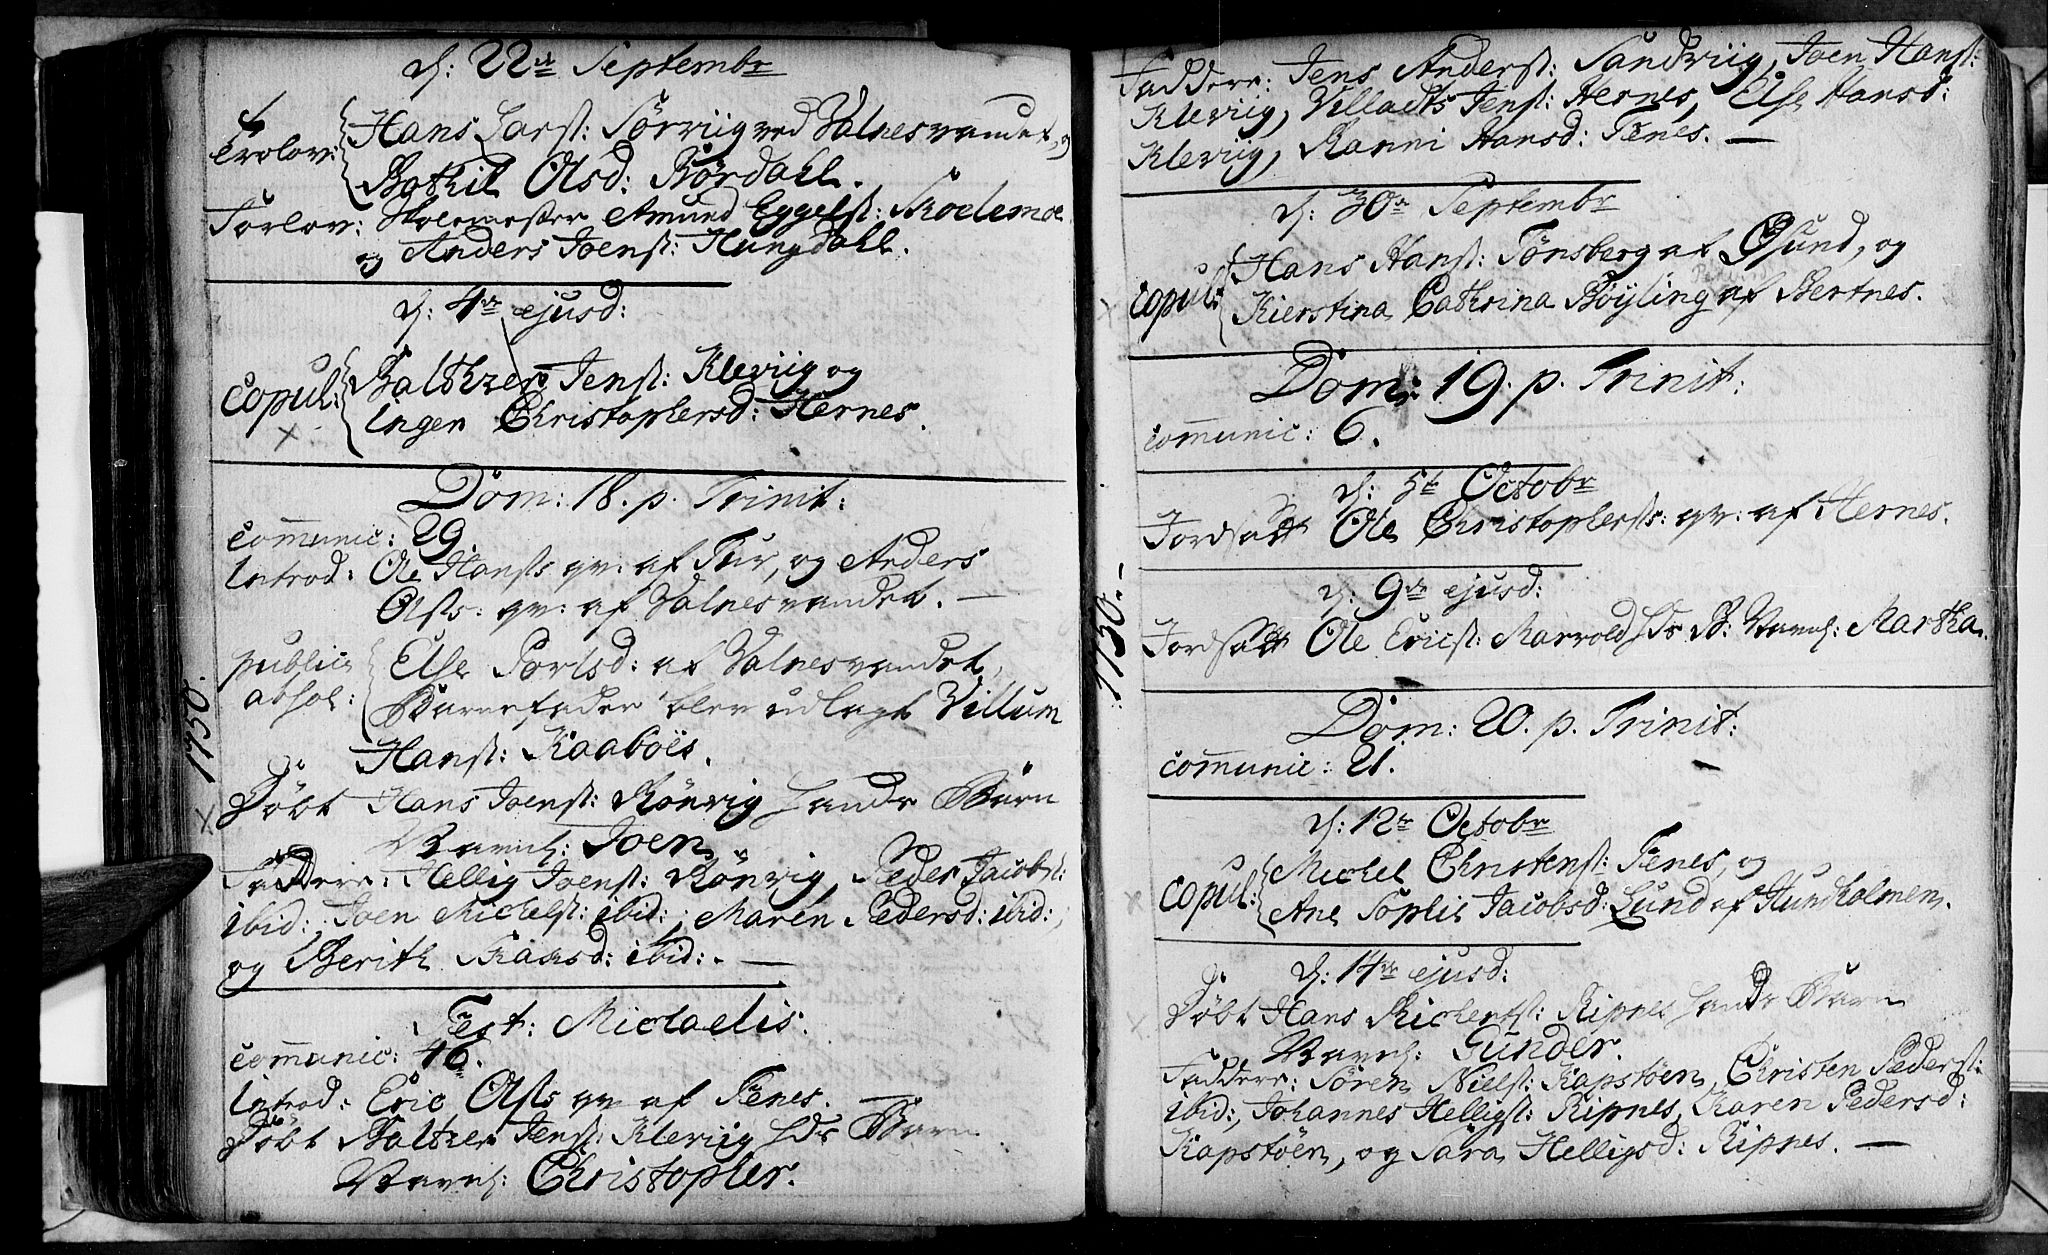 d: 22de Septembr
Trolov: Hans Larsø: Sørviig ved Valnesvandet, og
Bathil Olsd: Børdahl.
Forlov: Skolemester Amund Eggelsø: Skoelemoe
og Anders Joensø: Hungdahl.
d: 4de ejusd:
Copul: Balthzer Jensø: Kleviig og
Inger Christophersd: Hernes.
Dom: 18. p. Trinit:
Communic: 29
Introd: Ole Hansøs qv: af Tur, og Anders
Olsøs: qv: af Valnesvandet. —
publice Else Povlsd: af Valnesvandet,
absol: Barnefader blev udlagt Villum
Hansø: Kaaboes.
1750.
Døbt Hans Joensø: Rönvig hands Barn
Navnl: Joen
Faddere: Hellig Joensø: Rönvig, Peder Jacobsø:
ibid:, Joen Michelsø: ibid:, Maren Pedersd: ibid:,
og Berith Isaksd: ibid:. —
Fest: Michaelis.
Communic: 46.
Introd: Eric Olsøs qv af Fenes. —
Døbt Baltzer Jensø: Kleviig hds Barn
Navnl: Christopher.
Faddere: Jens Andersø: Sandviig, Joen Hansø:
Kleviig, Villadts Jensø: Hernes, Else Hansd:
Kleviig, Ranni Hansd: Fenes. —
d: 30te Septembr
Copul: Hans Hansø: Tønsberg af Øsund, og
Kierstina Cathrina Böyling af Bertnes.
Dom: 19. p. Trinit:
Communic: 6.
d: 5te Octobr
Jordsatt Ole Christophersøs: qv: af Hernes.
1750.
d: 9de ejusd:
Jordsatt Ole Ericsø: Marvold hds B: Navnl: Martha.
Dom: 20. p. Trinit:
Communic: 21.
d: 12te Octobr
Copul: Michel Christensø: Fenes, og
Ane Sophie Jacobsd: Lund af Hundholmen.
d: 14de ejusd:
Døbt Hans Richertsø: Ripnes hands Barn
Navnl: Gunder.
Faddere: Sören Nielsø: Kapstöen, Christen Pedersø:
ibid:, Johannes Helligsø: Ripnes, Karen Pedersd:
Kapstöen, og Sara Helligsd: Ripnes. —